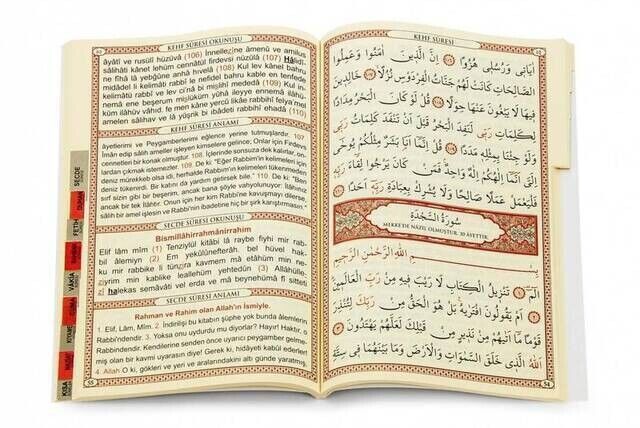 KEHF SÛRESİ OKUNUŞU
âyâtî ve rusulî hüzüvâ (106) İnnellezîne âmenû ve amilus
sâlihâti kânet lehum cennâtül firdevsi nüzülâ (107) Hâlidî-
ne fîhâ lâ yebğûne anhâ hivelâ (108) Kul lev kânel bahru
midâdel li kelimâti rabbî le nefidel bahru kable en tenfede
kelimâtü rabbî ve lev ci'nâ bi mislihî mededâ (109) Kul in-
nemâ ene beşerum mislüküm yûhâ ileyye ennemâ ilâhü-
küm ilâhüv vâhid, fe men kâne yercû likâe rabbihî felya'mel
amelen sâlihav ve lâ yüşrik bi ibâdeti rabbihî ehadâ (110)
KEHF SÛRESİ ANLAMI
âyetlerimi ve Peygamberlerimi eğlence yerine tutmuşlardır. 107
İman edip salih ameller işleyen kimselere gelince; Onlar için Firdevs
cennetleri bir konak olmuştur. 108. İçlerinde sonsuza dek kalırlar, on-
lardan çıkmak istemezler. 109. De ki: "Eğer Rabbim'in kelimeleri için
deniz mürekkeb olsa idi, herhalde Rabbim'in kelimeleri tükenmeden
deniz tükenirdi. Bir katını da yardım getirsek bile." 110. De ki: "Ben
sırf sizin gibi bir beşerim, ancak bana şöyle vahyolunuyor: İlâhınız
ancak bir tek İlâhtır. Onun için her kim Rabb'ine kavuşmayı dilerse,
sâlih bir amel işlesin ve Rabb'inin ibadetine hiç bir şirk karıştırmasın."
SECDE SÛRESİ OKUNUŞU
Bismillâhirrahmânirrahîm
Elif lâm mîm (1) Tenzîylül kitâbi lâ raybe fîyhi mir rab-
bil âlemîyn (2) Em yekûlûnefterâh, bel hüvel hak-
ku mir rabbike li tünzira kavmem mâ etâhüm min ne-
zîyrim min kablike leallehüm yehtedûn (3) Allâhülle-
zî halekas semâvâti vel erda ve mâ beynehümâ fî sitteti
SECDE SÛRESİ ANLAMI
Rahman ve Rahim olan Allah'ın İsmiyle.
1. Elif, Lâm, Mîm. 2. İndirilişi bu kitabın şüphe yok bunda âlemlerin
Rabbi'ndendir. 3. Yoksa onu uydurdu mu diyorlar? Hayır! Haktır, o
Rabbindendir. Kendilerine senden önce uyarıcı peygamber gelme-
miş olan bir kavmi uyarasın diye! Gerek ki, hidâyeti kabûl ederler!
4. Allah O ki, gökleri ve yeri ve aralarındakini altı günde yaratmış,
SECDE
DUHAN
FETİH
VÂKIA
KEHF SÛRESİ
اٰيَاتِي وَرُسُلِي هُزُوًا اِنَّ الَّذِينَ اٰمَنُوا وَعَمِلُوا
الصَّالِحَاتِ كَانَتْ لَهُمْ جَنَّاتُ الْفِرْدَوْسِ نُزُلًا خَالِدِينَ
فِيهَا لَا يَبْغُونَ عَنْهَا حِوَلًا قُلْ لَوْ كَانَ الْبَحْرُ مِدَادًا
لِكَلِمَاتِ رَبِّي لَنَفِدَ الْبَحْرُ قَبْلَ اَنْ تَنْفَدَ كَلِمَاتُ رَبِّي
وَلَوْ جِئْنَا بِمِثْلِهِ مَدَدًا قُلْ اِنَّمَا اَنَا بَشَرٌ مِثْلُكُمْ يُوحٰى
اِلَيَّ اَنَّمَا اِلٰهُكُمْ اِلٰهٌ وَاحِدٌ فَمَنْ كَانَ يَرْجُوا لِقَاءَ رَبِّهِ
فَلْيَعْمَلْ عَمَلًا صَالِحًا وَلَا يُشْرِكْ بِعِبَادَةِ رَبِّهِ اَحَدًا
سُورَةُ السَّجْدَةِ
MEKKE'DE NÂZİL OLMUŞTUR. 30 ÂYETTİR.
بِسْمِ اللّٰهِ الرَّحْمٰنِ الرَّحِيمِ
الٓمٓ تَنْزِيلُ الْكِتَابِ لَا رَيْبَ فِيهِ مِنْ رَبِّ الْعَالَمِينَ
اَمْ يَقُولُونَ افْتَرٰيهُ بَلْ هُوَ الْحَقُّ مِنْ رَبِّكَ لِتُنْذِرَ
قَوْمًا مَا اَتٰيهُمْ مِنْ نَذِيرٍ مِنْ قَبْلِكَ لَعَلَّهُمْ يَهْتَدُونَ
اَللّٰهُ الَّذِي خَلَقَ السَّمٰوَاتِ وَالْاَرْضَ وَمَا بَيْنَهُمَا فِي سِتَّةِ